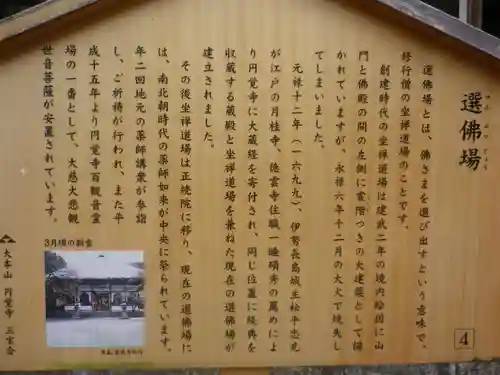 選佛場
せん ぶつ じょう
選佛場とは、佛さまを選び出すという意味で、
修行僧の坐禅道場のことです。
創建時代の坐禅道場は建武二年の境内絵図に山
門と佛殿の間の左側に裳階つきの大建築として描
かれていますが、永禄六年十二月の大火で焼失し
てしまいました。
元禄十二年（一六九九）、伊勢長島城主松平忠充
が江戸の月桂寺、徳雲寺住職一睡碩秀の薦めによ
り円覚寺に大蔵経を寄付され、同じ位置に経典を
収蔵する蔵殿と坐禅道場を兼ねた現在の選佛場が
建立されました。
その後坐禅道場は正続院に移り、現在の選佛場に
は、南北朝時代の薬師如来が中央に祭られています。
年二回地元の薬師講衆が参詣
し、ご祈祷が行われ、また平
成十五年より円覚寺百観音霊
場の一番として、大慈大悲観
世音菩薩が安置されています。
3月頃の新雪
大本山 円覚寺 三宝会
4